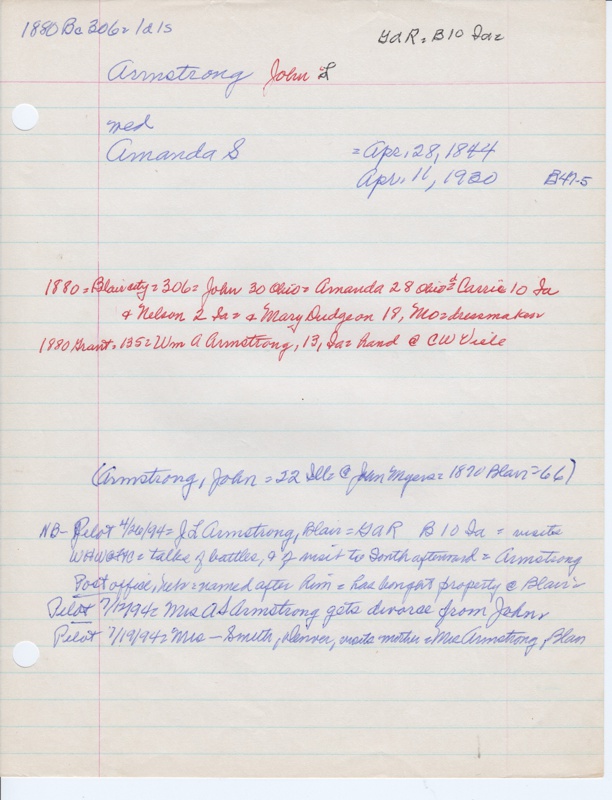 1880 Bc 306= 1d 1s
GAR= B10 Ia=
Armstrong John L
med
Amanda S =Apr. 28, 1844
Apr. 11, 1930 B47-5
1880= Blair city= 306= John 30 Ohio= Amanda 28 Ohio= & Carrie 10 Ia
& Nelson 2 Ia= & Mary Dudgeon 18, Mo=dressmaker
1880 Grant= 135= Wm A Armstrong, 13, Ia= hand @ CW Viele
(Armstrong, John = 22 Ill @ John Myers= 1870 Blair= 66)
NB- Pilot 4/26/94= J L Armstrong, Blair= GAR B 10 Ia = visits
= talks of battles, & of visit to South afterward = Armstrong
Post office, Neb= named after him = has bought property @ Blair=
Pilot 7/12/94= Mrs AS Armstrong gets divorce from John
Pilot 7/19/94= Mrs - Smith, Denver, visits mother= Mrs Armstrong, Blair